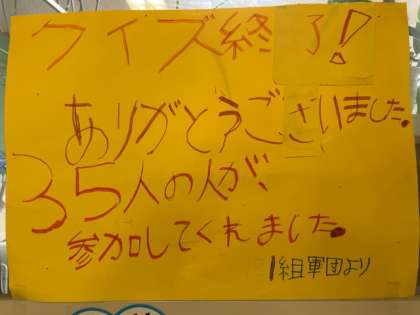 クイズ終了!
ありがとうございました。
35人の人が、
参加してくれました。
1組軍団より